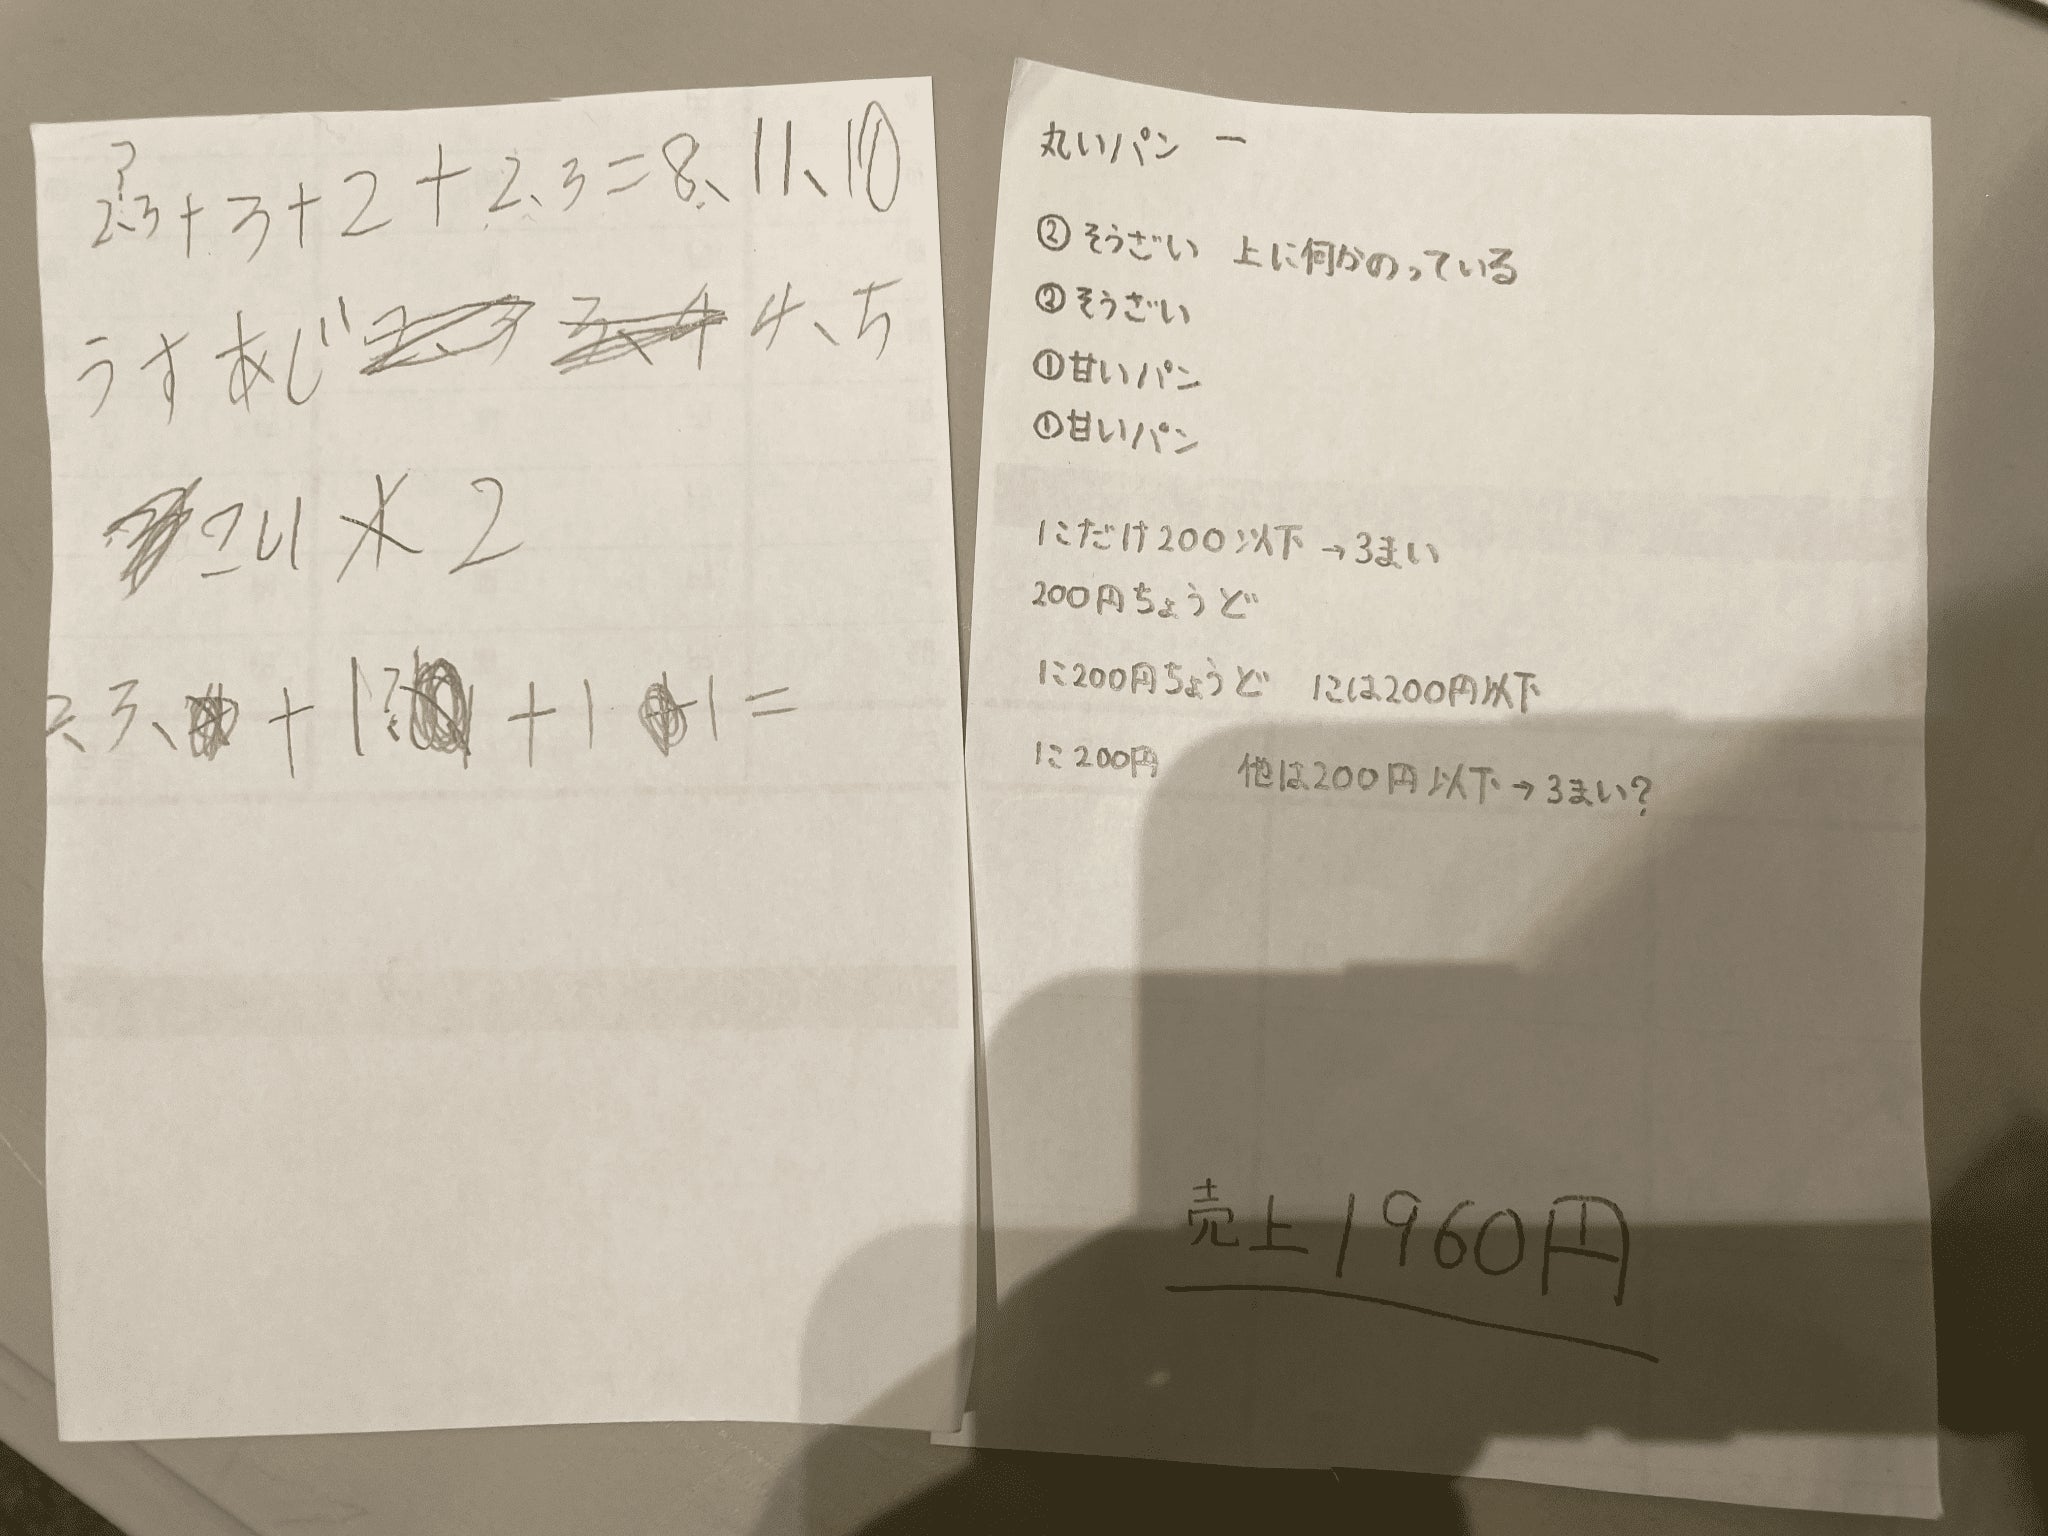 ?
2、3+3+2+2、3=8、11、10
うすあじ 4、5
こい×2
2、3、+1?+1+1=
丸いパン 一
②そうざい 上に何かのっている
②そうざい
①甘いパン
①甘いパン
にだけ200以下→3まい
200円ちょうど
に200円ちょうど には200円以下
に200円 他は200円以下→3まい?
売上1960円